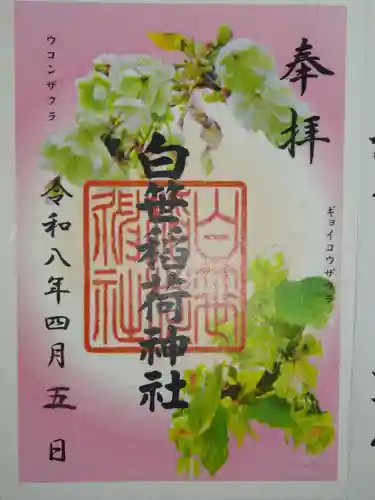 奉拝
ギョイコウザクラ
白笹稲荷神社
白笹稲荷神社
ウコンザクラ
令和八年四月五日